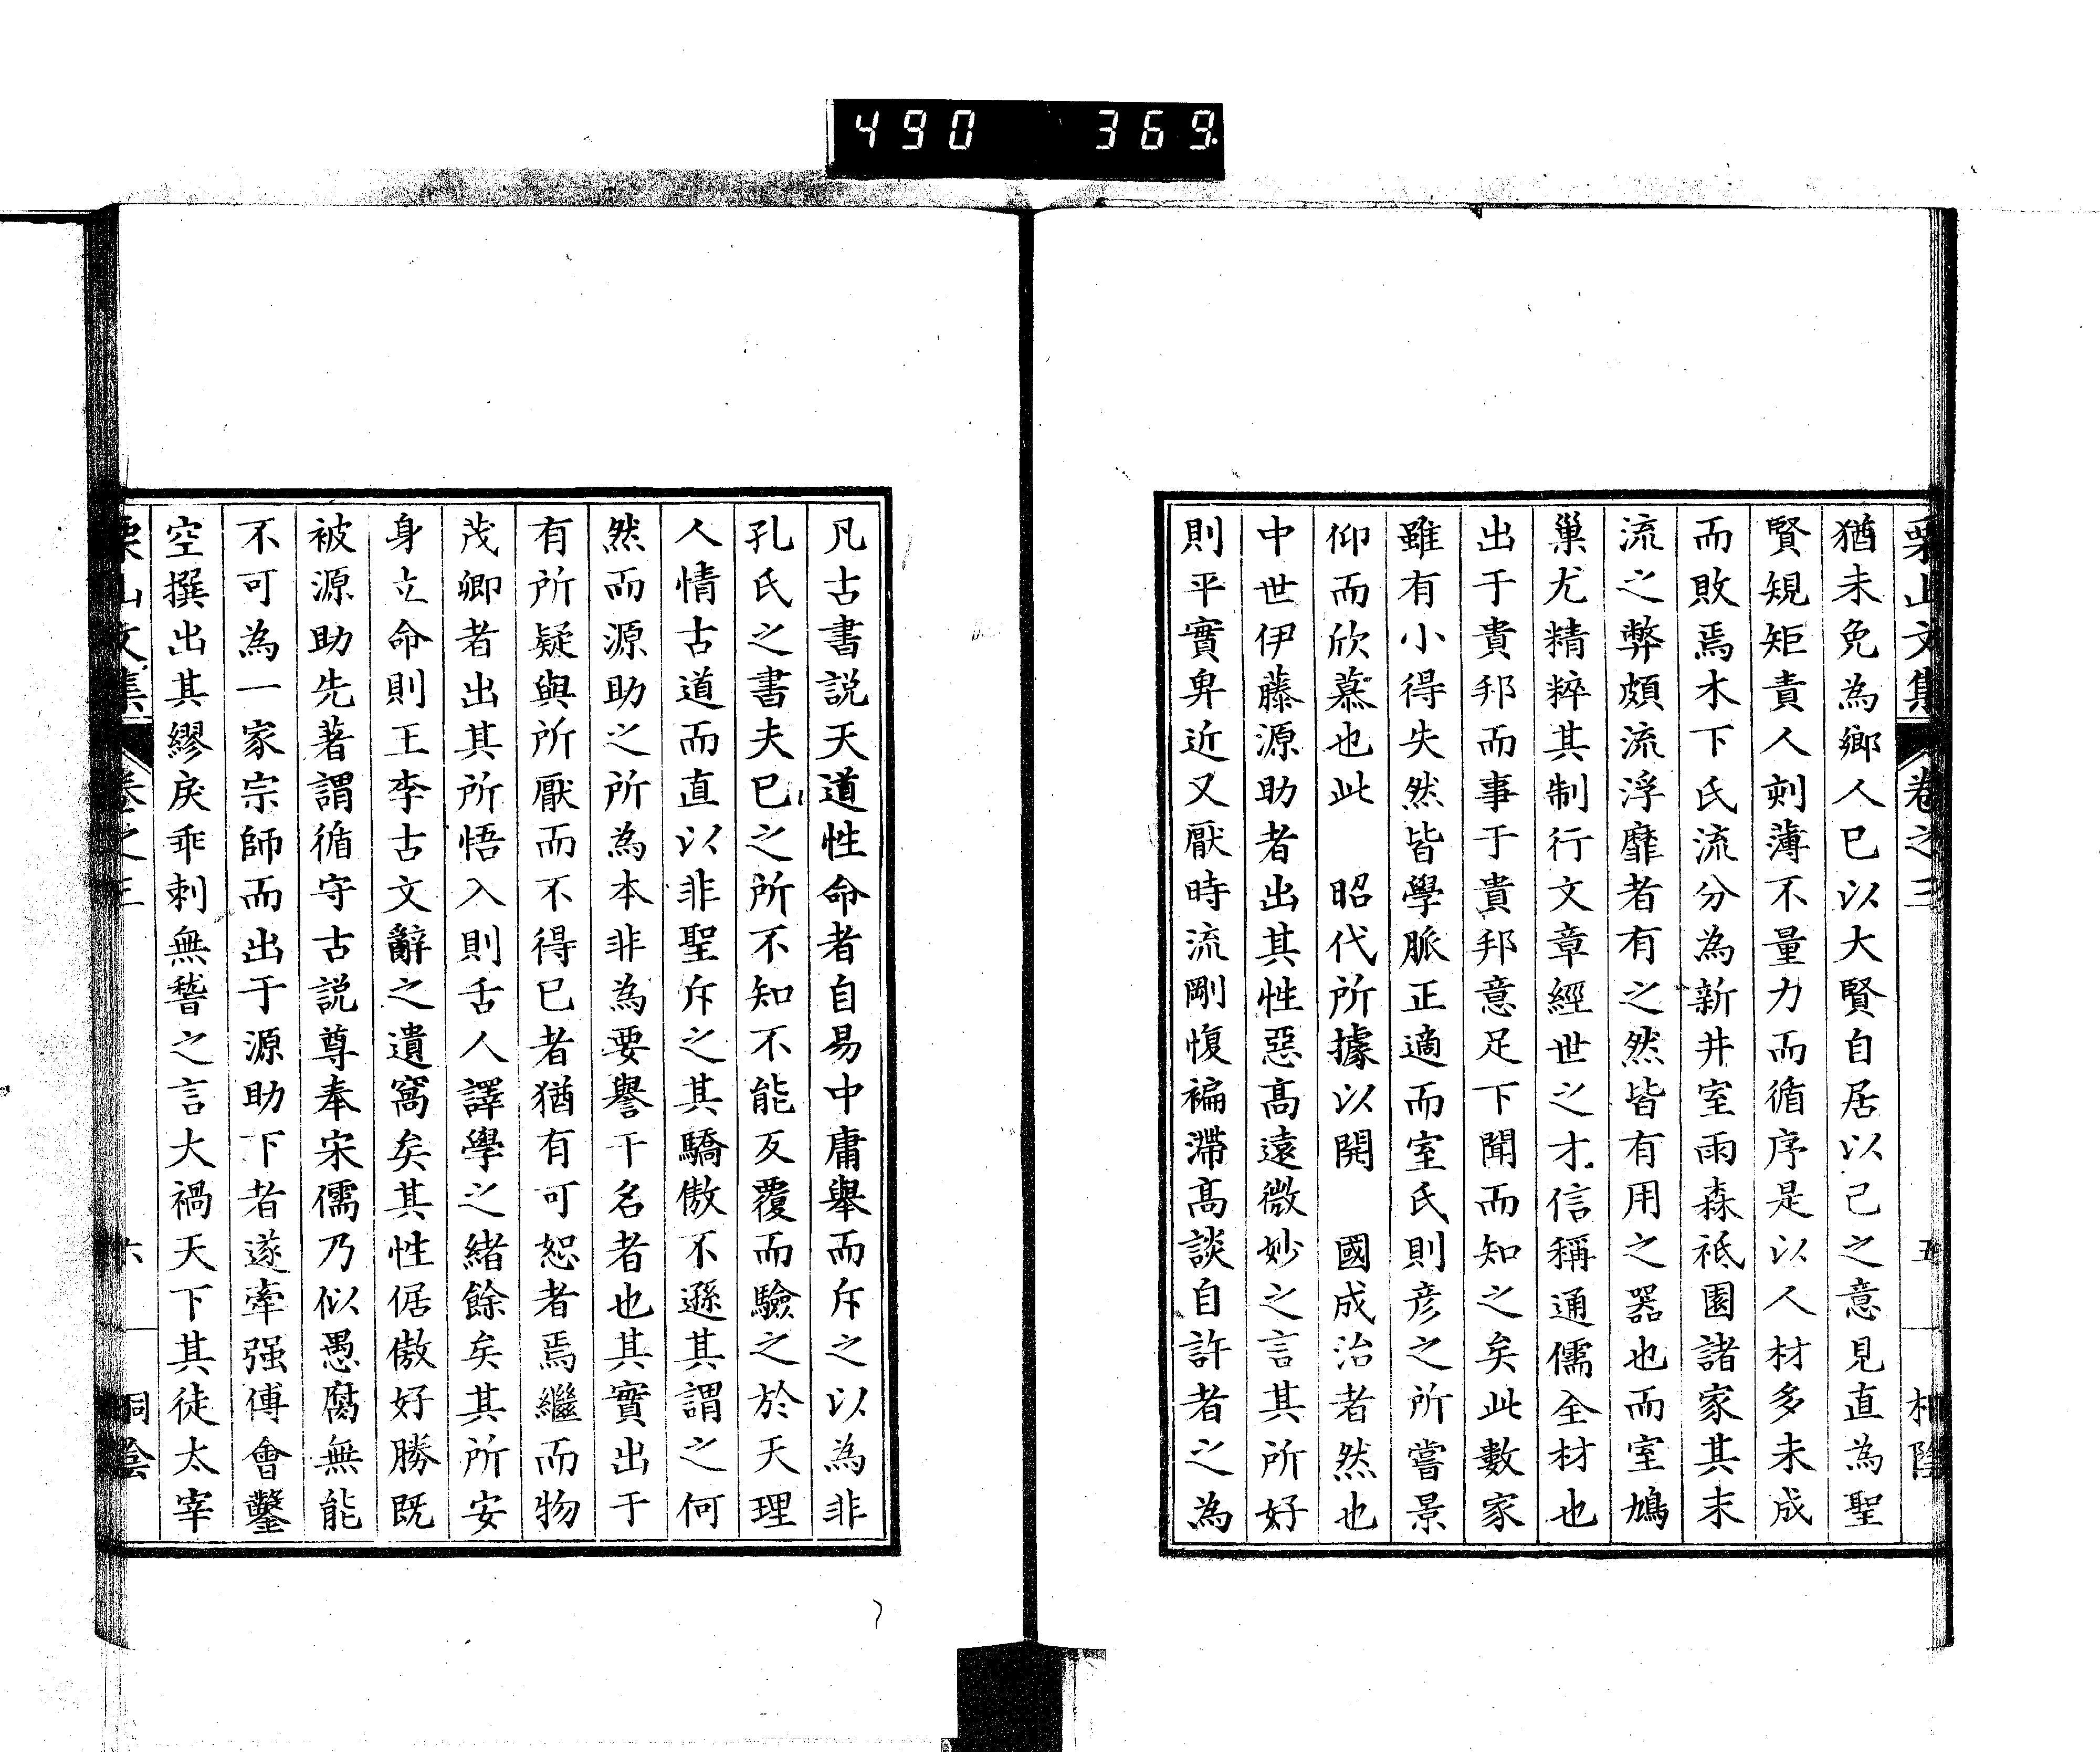 490 369
栗山文集 卷之三 五
猶未免為鄉人已以大賢自居以己之意見直為聖
賢規矩責人刻薄不量力而循序是以人材多未成
而敗焉木下氏流分為新井室雨森祇園諸家其末
流之弊頗流浮靡者有之然皆有用之器也而室鳩
巢尤精粹其制行文章經世之才信稱通儒全材也
出于貴邦而事于貴邦意足下聞而知之矣此數家
雖有小得失然皆學脈正適而室氏則彦之所嘗景
仰而欣慕也此　昭代所據以開　國成治者然也
中世伊藤源助者出其性惡高遠微妙之言其所好
則平實卑近又厭時流剛愎褊滯高談自許者之為
凡古書説天道性命者自易中庸舉而斥之以為非
孔氏之書夫已之所不知不能反覆而驗之於天理
人情古道而直以非聖斥之其驕傲不遜其謂之何
然而源助之所為本非為要譽干名者也其實出于
有所疑與所厭而不得已者猶有可恕者焉繼而物
茂卿者出其所悟入則舌人譯學之緒餘矣其所安
身立命則王李古文辭之遺窩矣其性倨傲好勝既
被源助先著謂循守古説尊奉宋儒乃似愚腐無能
不可為一家宗師而出于源助下者遂牽强傅會鑿
空撰出其繆戾乖刺無瞀之言大禍天下其徒太宰
栗山文集 卷之三 六 桐陰